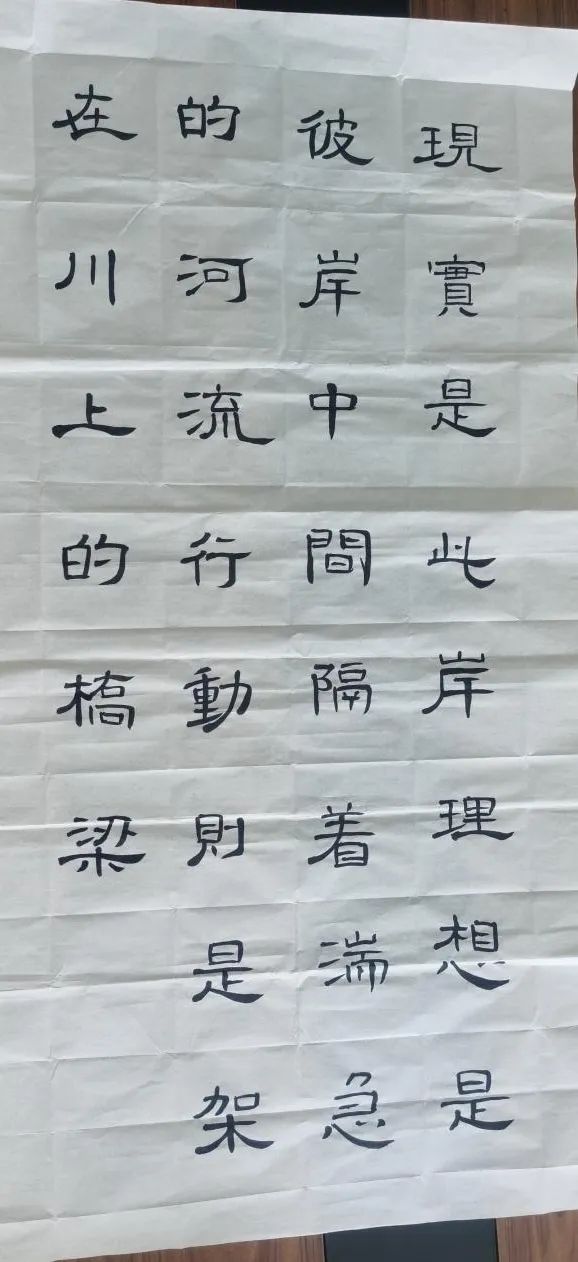 現實是此岸理想是
彼岸中間隔着湍急
的河流行動則是架
在川上的橋梁